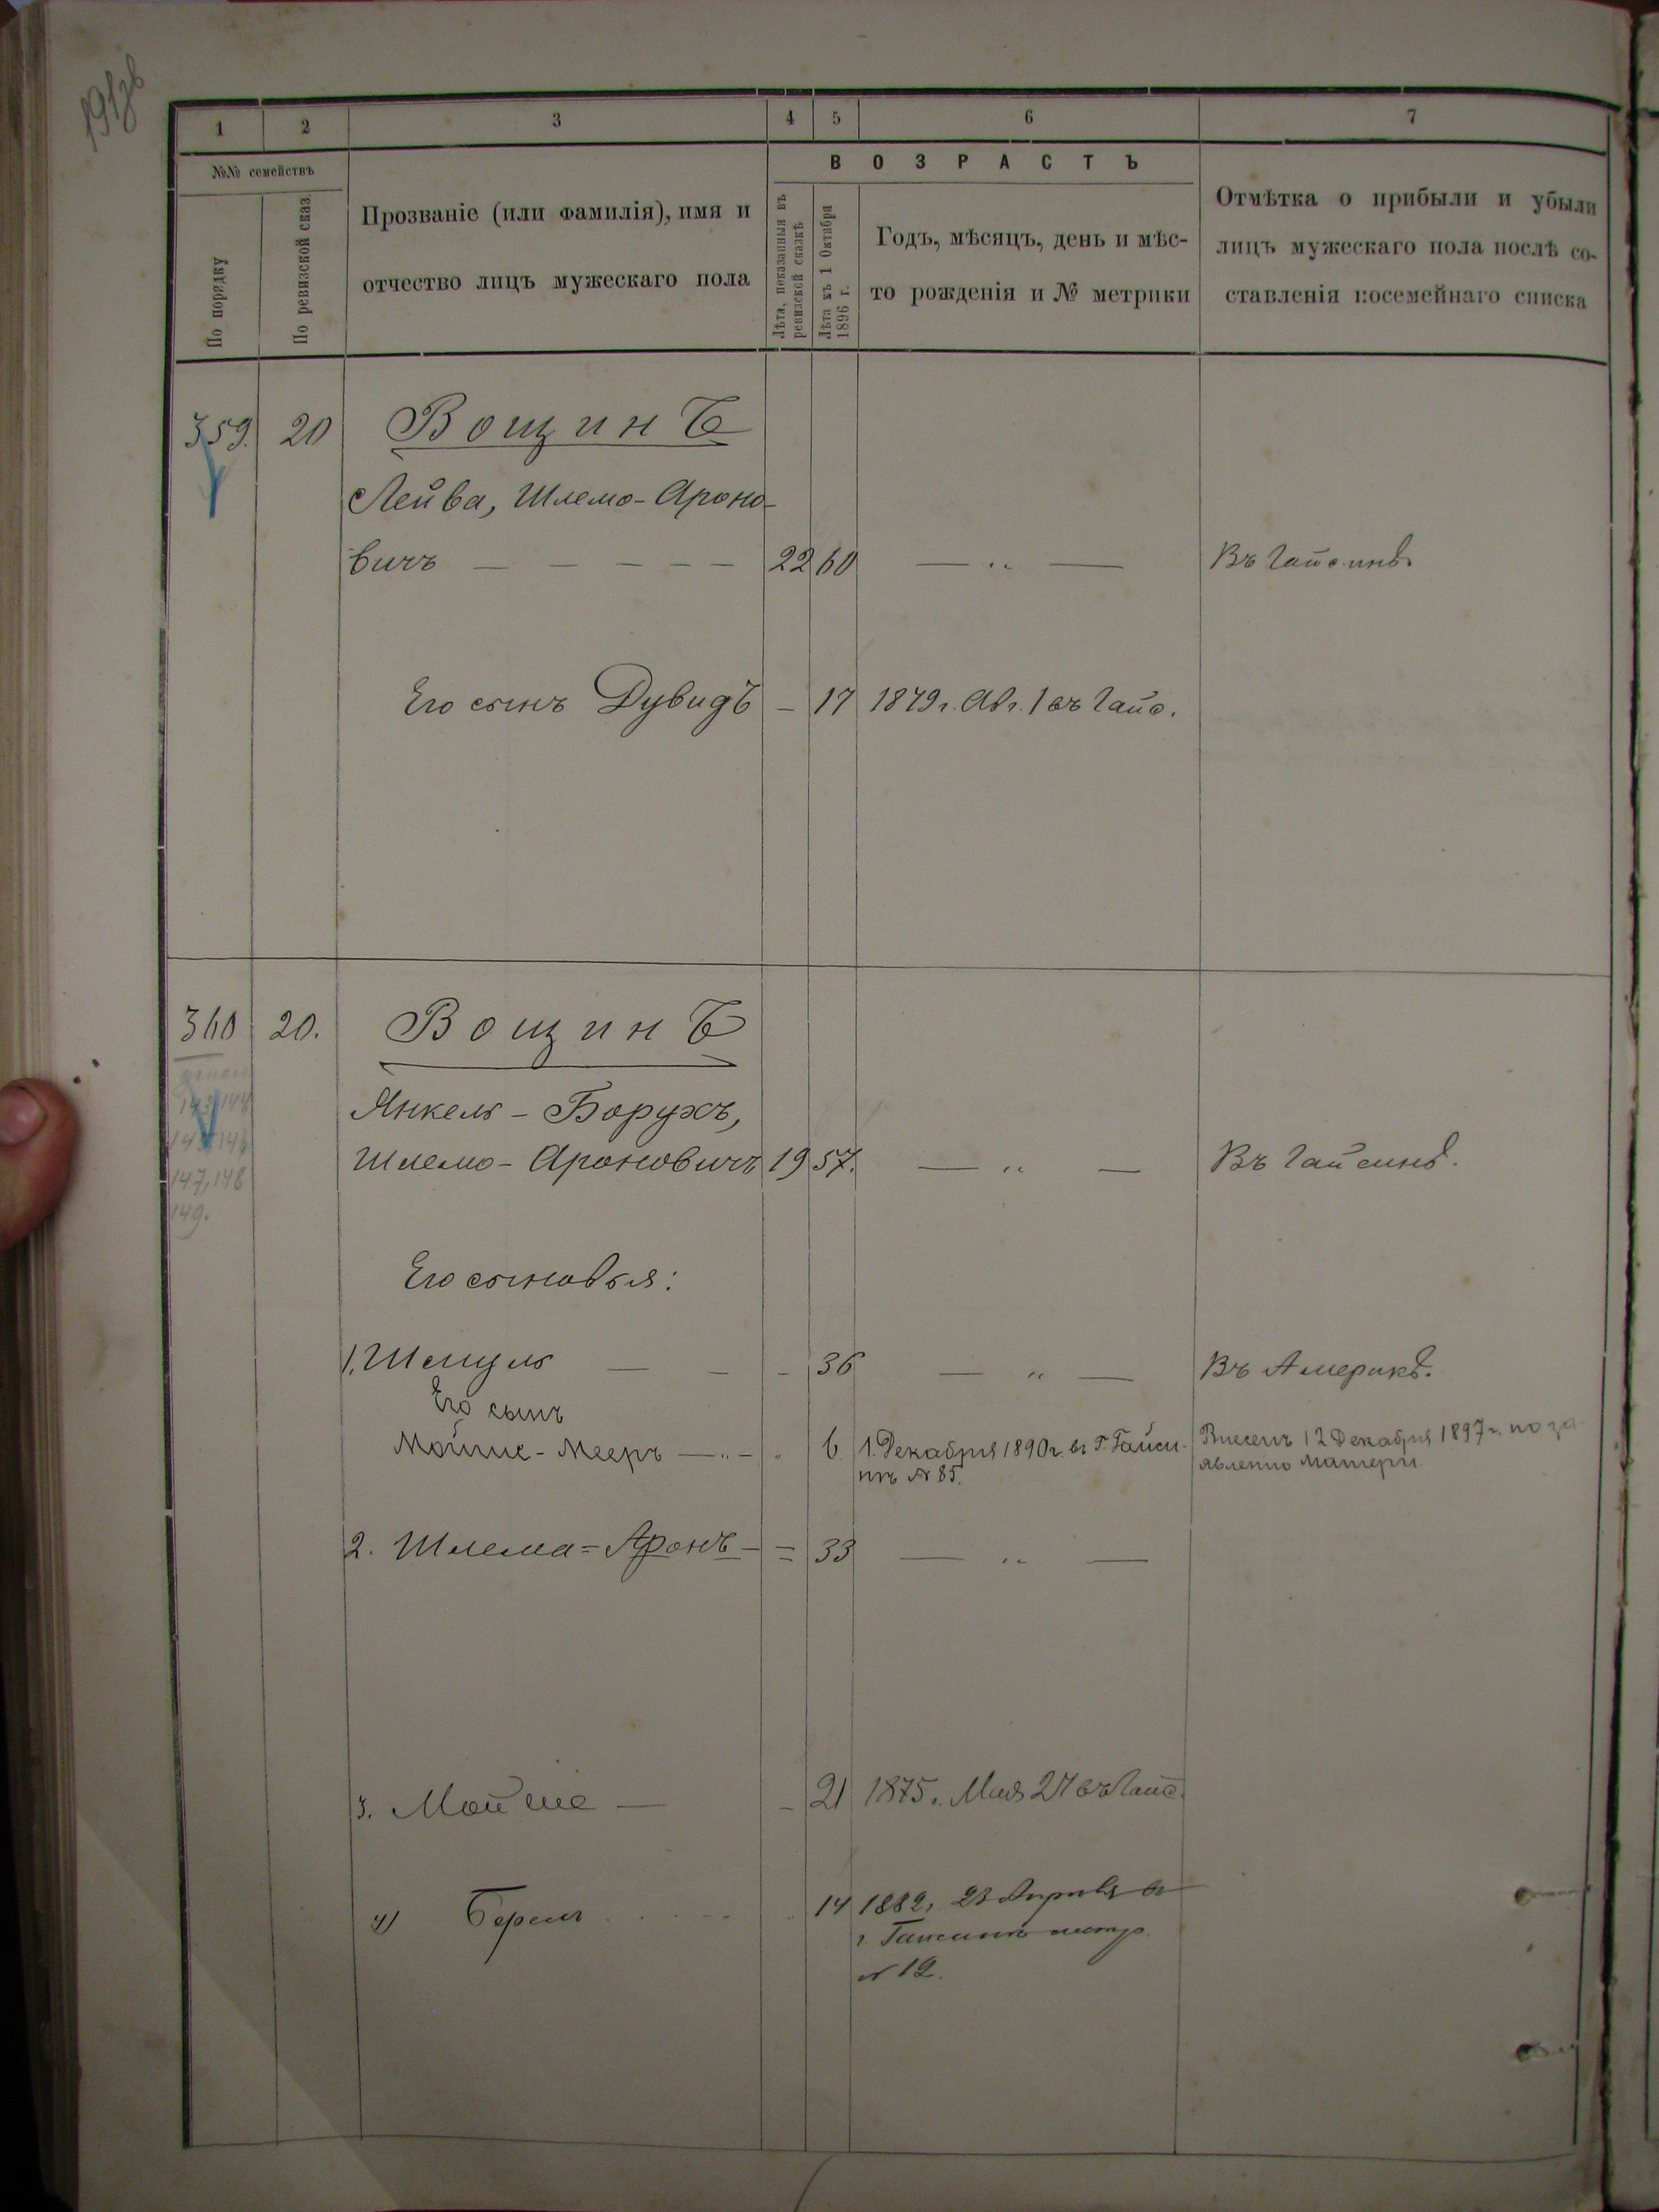 1 2 3 4 5 6 7
№№ семействъ
По порядку
По ревизской сказ.
Прозваніе (или фамилія), имя и
отчество лицъ мужескаго пола
ВОЗРАСТЪ
Лѣта, показанныя въ
ревизской сказкѣ
Лѣта къ 1 Октября
1896 г.
Годъ, мѣсяцъ, день и мѣс-
то рожденія и № метрики
Отмѣтка о прибыли и убыли
лицъ мужескаго пола послѣ со-
ставленія посемейнаго списка
359. 20 Вощинъ
Лейба, Шлемо-Ароно-
вичъ — — — — — 22 60 — „ — Въ Гайсинѣ.
Его сынъ Дувидъ — 17 1879 г. Авг. 1 въ Гайс.
360 20. Вощинъ
Янкель-Борухъ,
Шлемо-Ароновичъ 19 57. — „ — Въ Гайсинѣ.
143, 144
145, 146
147, 148
149.
Его сыновья:
1. Шмуль — — - 36 — „ — Въ Америкѣ.
Его сынъ
Мойше-Мееръ — „ — „ 6. 1. Декабря 1890 г. въ г. Гайси- Внесенъ 12 Декабря 1897 г. по за-
нѣ № 85. явленію матери.
2. Шлема=Аронъ — = 33 — „ —
3. Мойше — - 21 1875 г. Мая 27 въ Гайс.
4) Берель 14 1882 г. 23 Апрѣля въ
г Гайсинѣ метр.
№ 12.